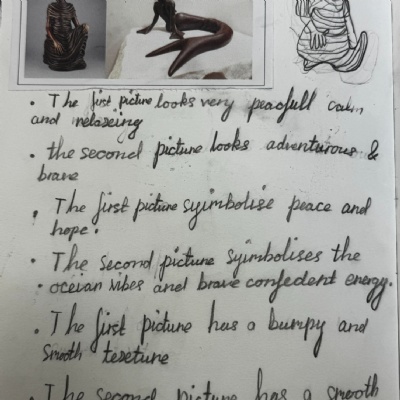 . The first picture looks very peacfull calm
and relaxeing
. the second picture looks adventurous &
brave
. The first picture syimbolise peace and
hope.
. The second picture Syimbolises the
oceian vibes and brave confedent energy.
. The first picture has a bumpy and
Smooth texeture
. The second picture has a smooth